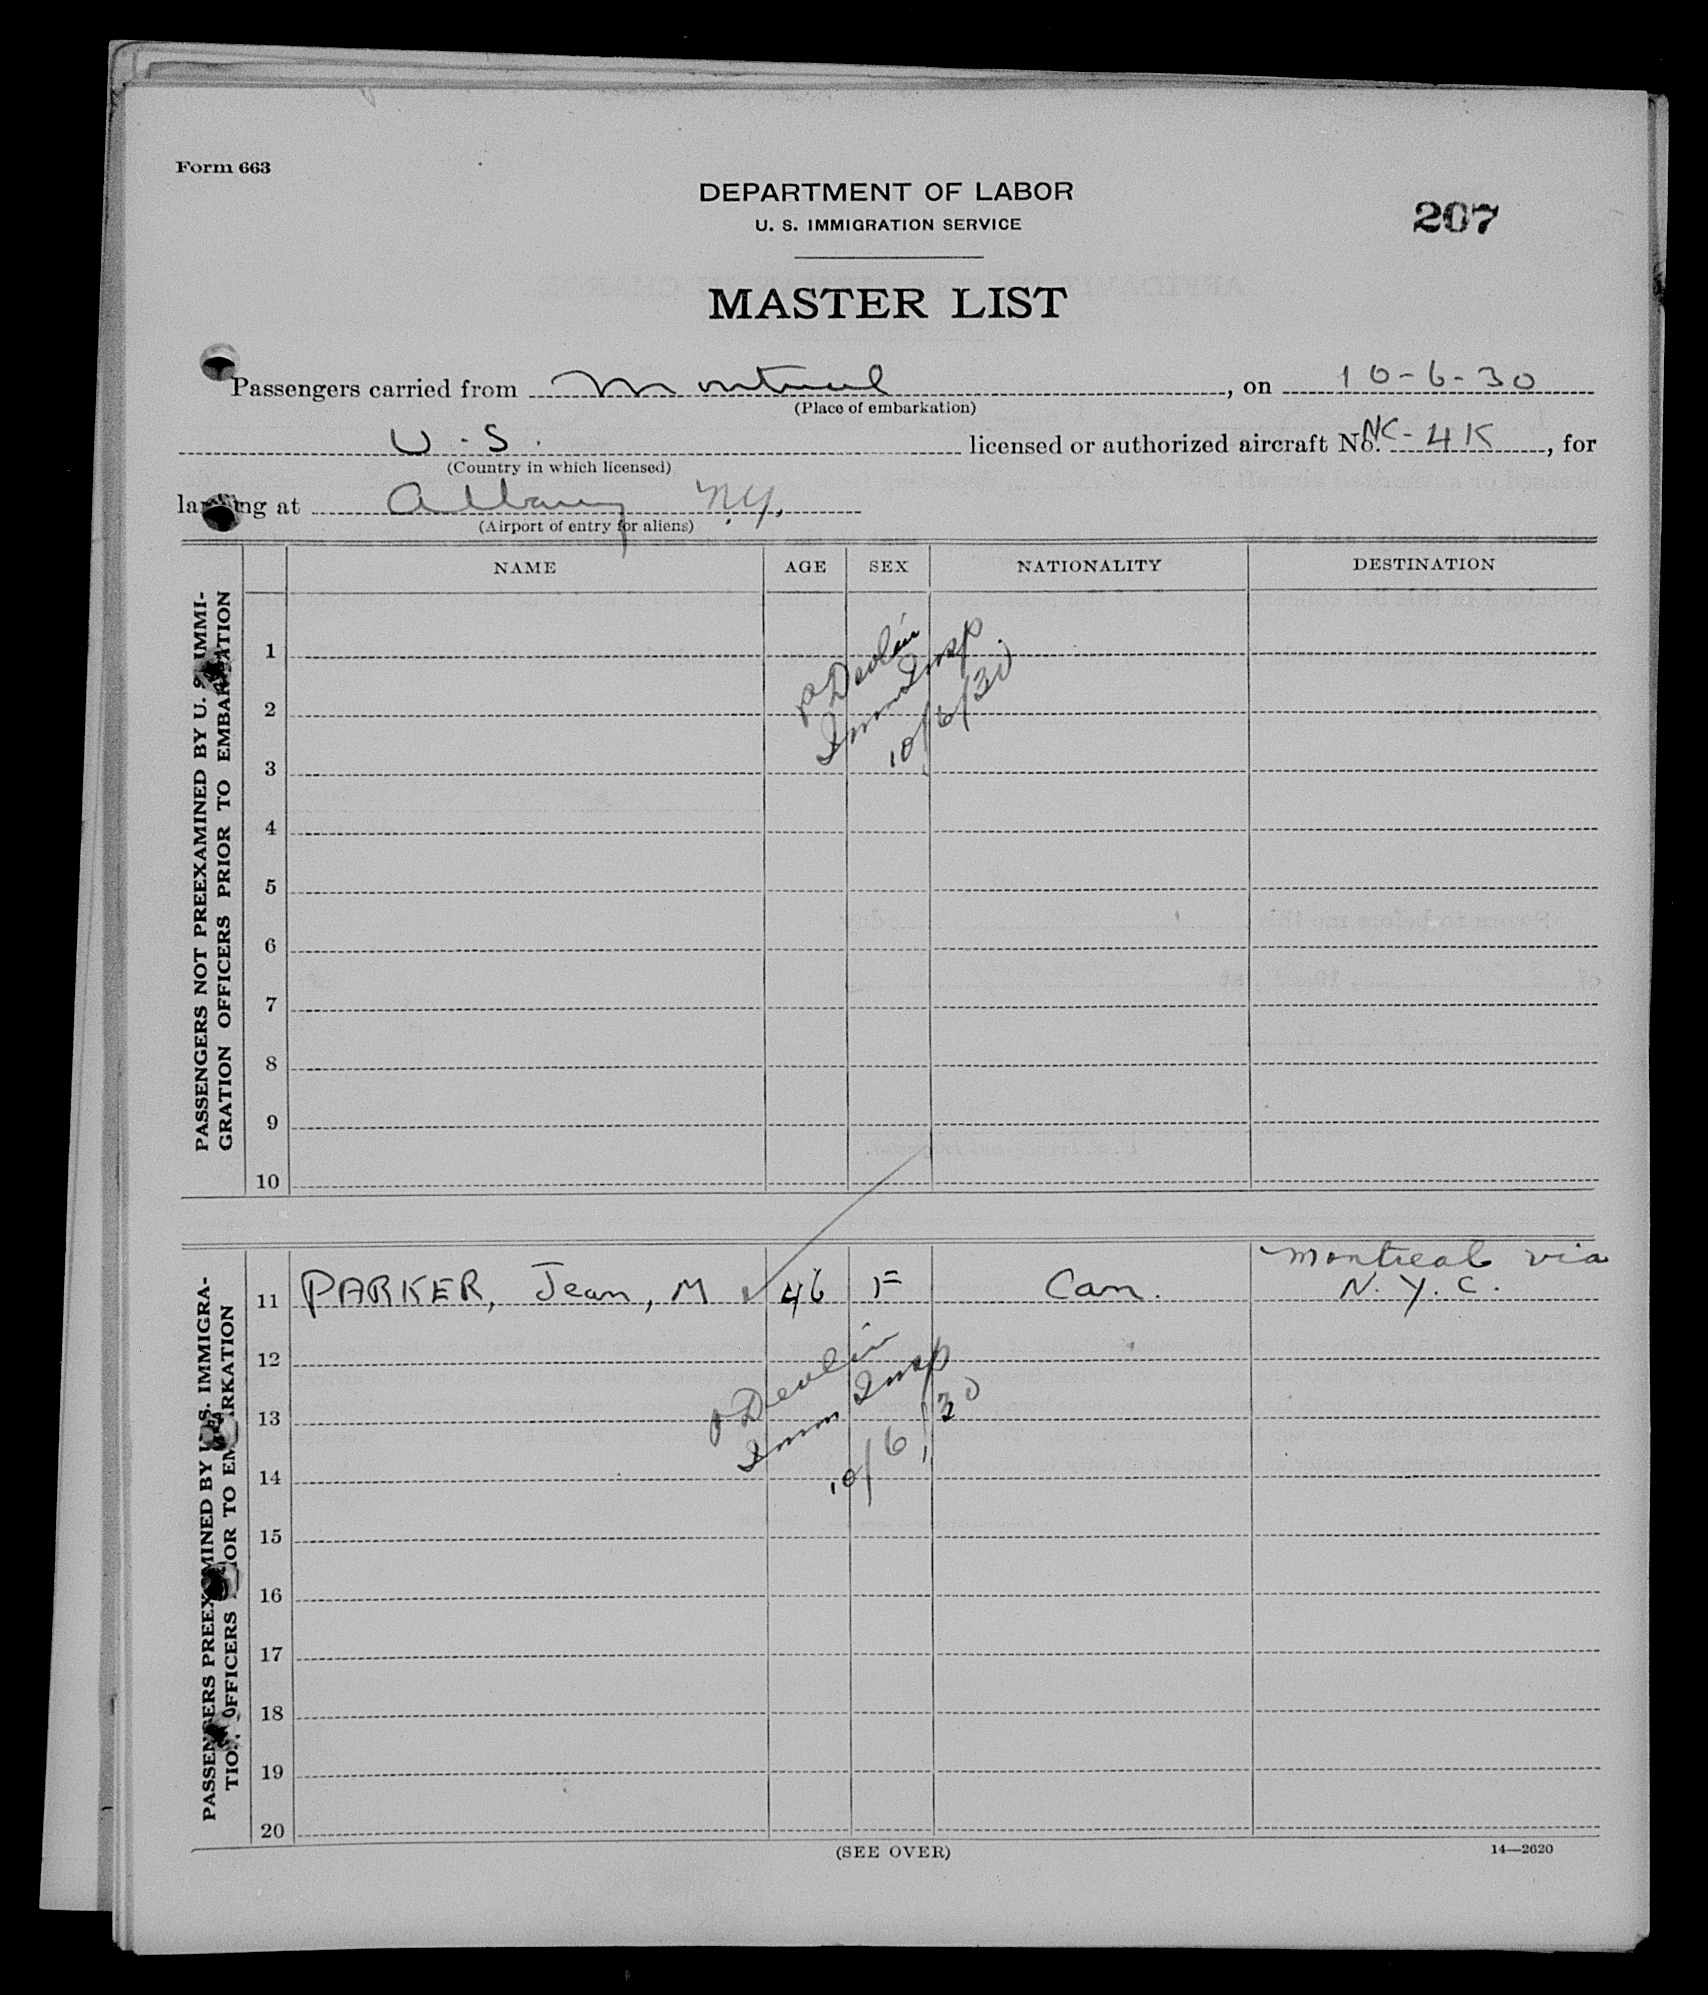 Form 663
DEPARTMENT OF LABOR
U. S. IMMIGRATION SERVICE
207
MASTER LIST
Passengers carried from Montreal, on 10-6-30
(Place of embarkation)
U.S. licensed or authorized aircraft No. NC-4K, for
(Country in which licensed)
landing at Albany N.Y.
(Airport of entry for aliens)
NAME AGE SEX NATIONALITY DESTINATION
PASSENGERS NOT PREEXAMINED BY U. S. IMMI-
GRATION OFFICERS PRIOR TO EMBARKATION
1
2
3
P Devlin
Imm Insp
10/6/30
4
5
6
7
8
9
10
PASSENGERS PREEXAMINED BY U. S. IMMIGRA-
TION OFFICERS PRIOR TO EMBARKATION
Montreal via
11 PARKER, Jean, M 46 F Can. N.Y.C.
12
13
14
P Devlin
Imm Insp
10/6/30
15
16
17
18
19
20
(SEE OVER)
14—2620